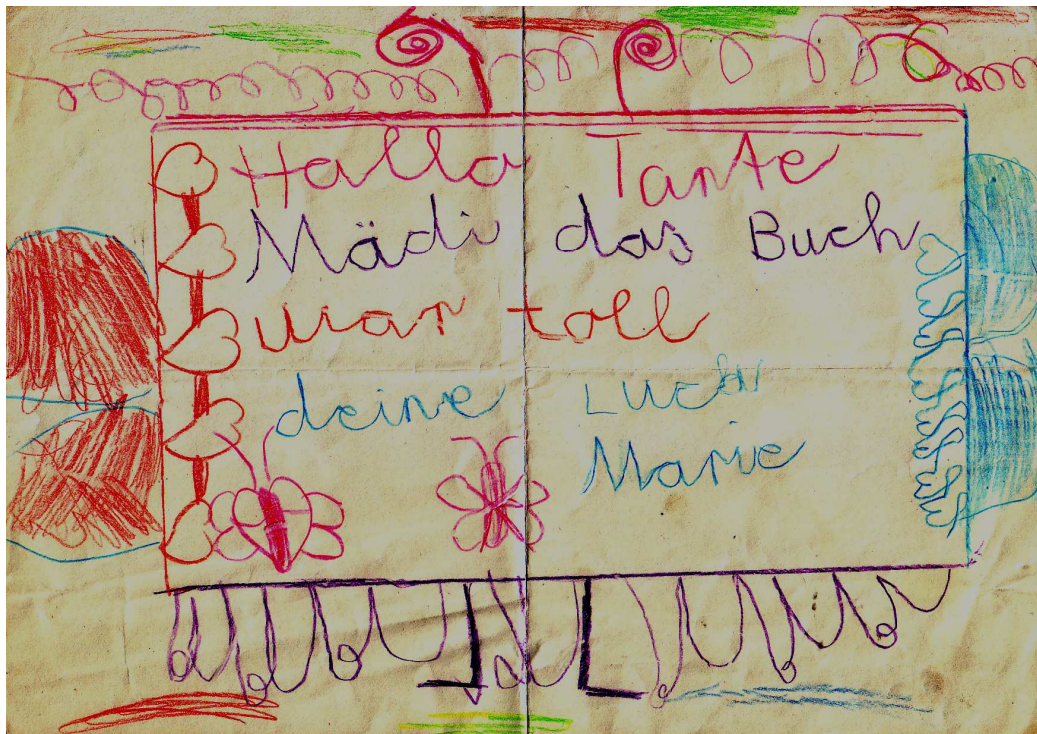 Hallo Tante
Mädi das Buch
war toll
deine
Marie